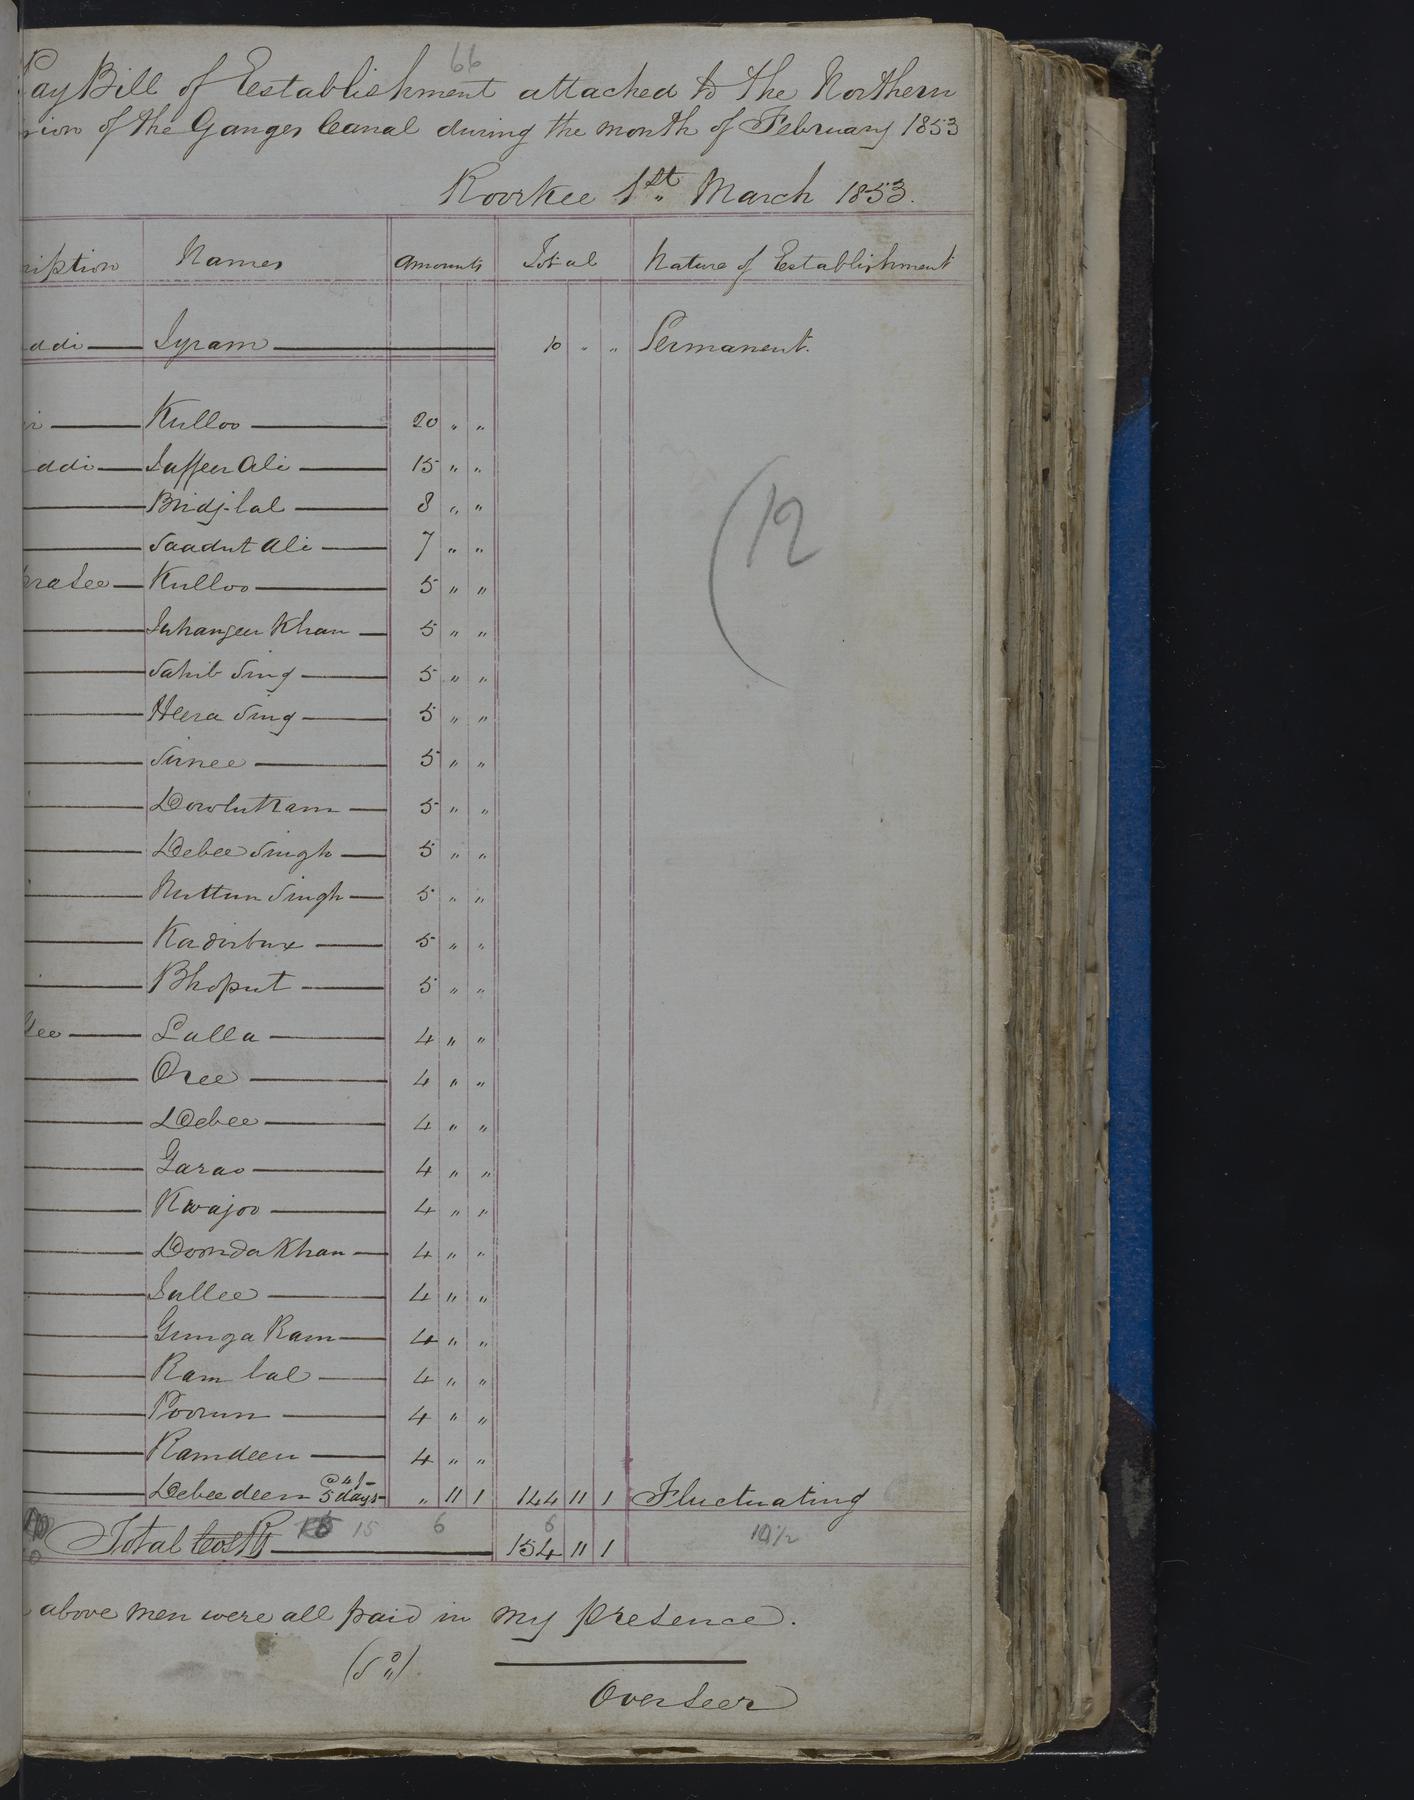 66
Pay Bill of Establishment attached to the Northern
sion of the Ganges Canal during the month of February 1853
Roorkee 1st March 1853.
ription Names Amounts Total Nature of Establishment
addi Jyram 10 " " Permanent.
Kulloo 20 " "
addi Jaffeer Ali 15 " "
Bridj lal 8 " "
Saadut Ali 7 " "
rasee Kulloo 5 " "
Juhangeer Khan 5 " "
Sahib Sing 5 " "
Heera Sing 5 " "
5 " "
Dowlutram 5 " "
Debee Singh 5 " "
Ruttun Singh 5 " "
Kadirbux 5 " "
Bhoput 5 " "
Lalla 4 " "
Oree 4 " "
Debee 4 " "
Garao 4 " "
Kwajoo 4 " "
Doonda Khan 4 " "
Jullee 4 " "
Gunga Ram 4 " "
Ram lal 4 " "
Poorun 4 " "
Ramdeen 4 " "
Debeedeen @ 4/- 5 days " 11 1 144 11 1 Fluctuating
Total Co's Rs 15 6 6 154 11 1 10 1/2
(12
above men were all paid in my presence.
(Sd)
Overseer